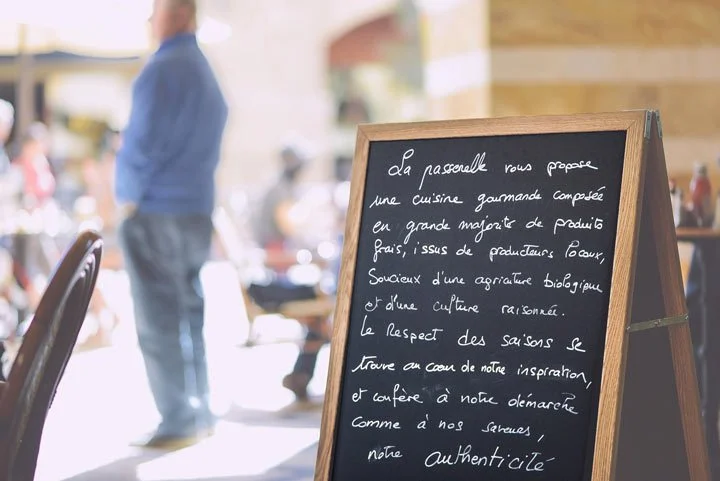 La passerelle vous propose
une cuisine gourmande composée
en grande majorité de produits
frais, issus de producteurs locaux,
Soucieux d'une agriculture biologique
et d'une culture raisonnée.
Le Respect des saisons se
trouve au cœur de notre inspiration,
et confère à notre démarche
comme à nos saveurs,
notre authenticité